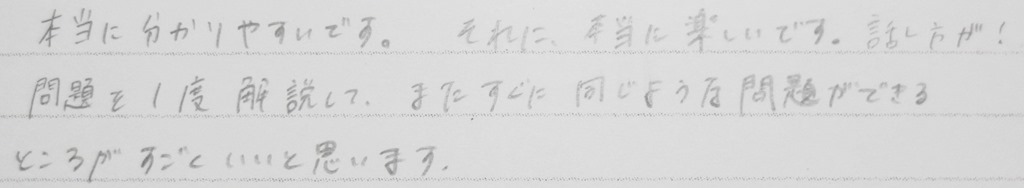 本当に分かりやすいです。 それに、本当に楽しいです。話し方が!
問題を1度解説して、またすぐに同じような問題ができる
ところがすごくいいと思います。